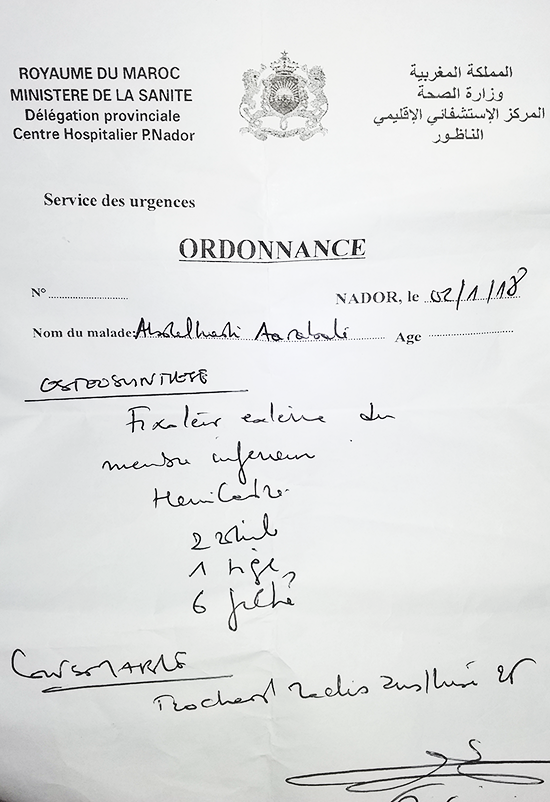 ROYAUME DU MAROC
MINISTERE DE LA SANITE
Délégation provinciale
Centre Hospitalier P.Nador
المملكة المغربية
وزارة الصحة
المركز الإستشفائي الإقليمي
الناظور
Service des urgences
ORDONNANCE
N° ............................
NADOR, le 02/1/18
Nom du malade: Age ............................
OSTEOSYNTHESE
Fixateur externe du
membre inferieur
Hemi Cadre
2
1 tige
6 fiche
CONSOMABLE